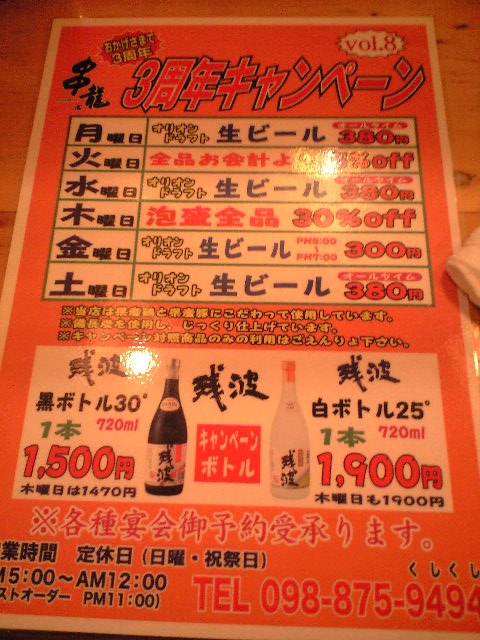 おかげさまで
3周年
vol.8
串龍
3周年キャンペーン
月曜日 オリオンドラフト 生ビール オールタイム 380円
火曜日 全品お会計よ %off
水曜日 オリオンドラフト 生ビール オールタイム 380円
木曜日 泡盛全品 30%off
金曜日 オリオンドラフト 生ビール PM5:00 PM7:00 300円
土曜日 オリオンドラフト 生ビール オールタイム 380円
※当店は県産鶏と県産豚にこだわって使用しています。
※備長炭を使用し、じっくり仕上げています。
※キャンペーン対照商品のみの利用はごえんりょ下さい。
残波
黒ボトル30°
1本 720ml
1,500円
木曜日は1470円
残波
キャンペーン
ボトル
残波
白ボトル25°
1本 720ml
1,900円
木曜日も1900円
※各種宴会御予約受承ります。
業時間 定休日(日曜・祝祭日)
M5:00～AM12:00
ストオーダー PM11:00)
くしくし
TEL 098-875-9494